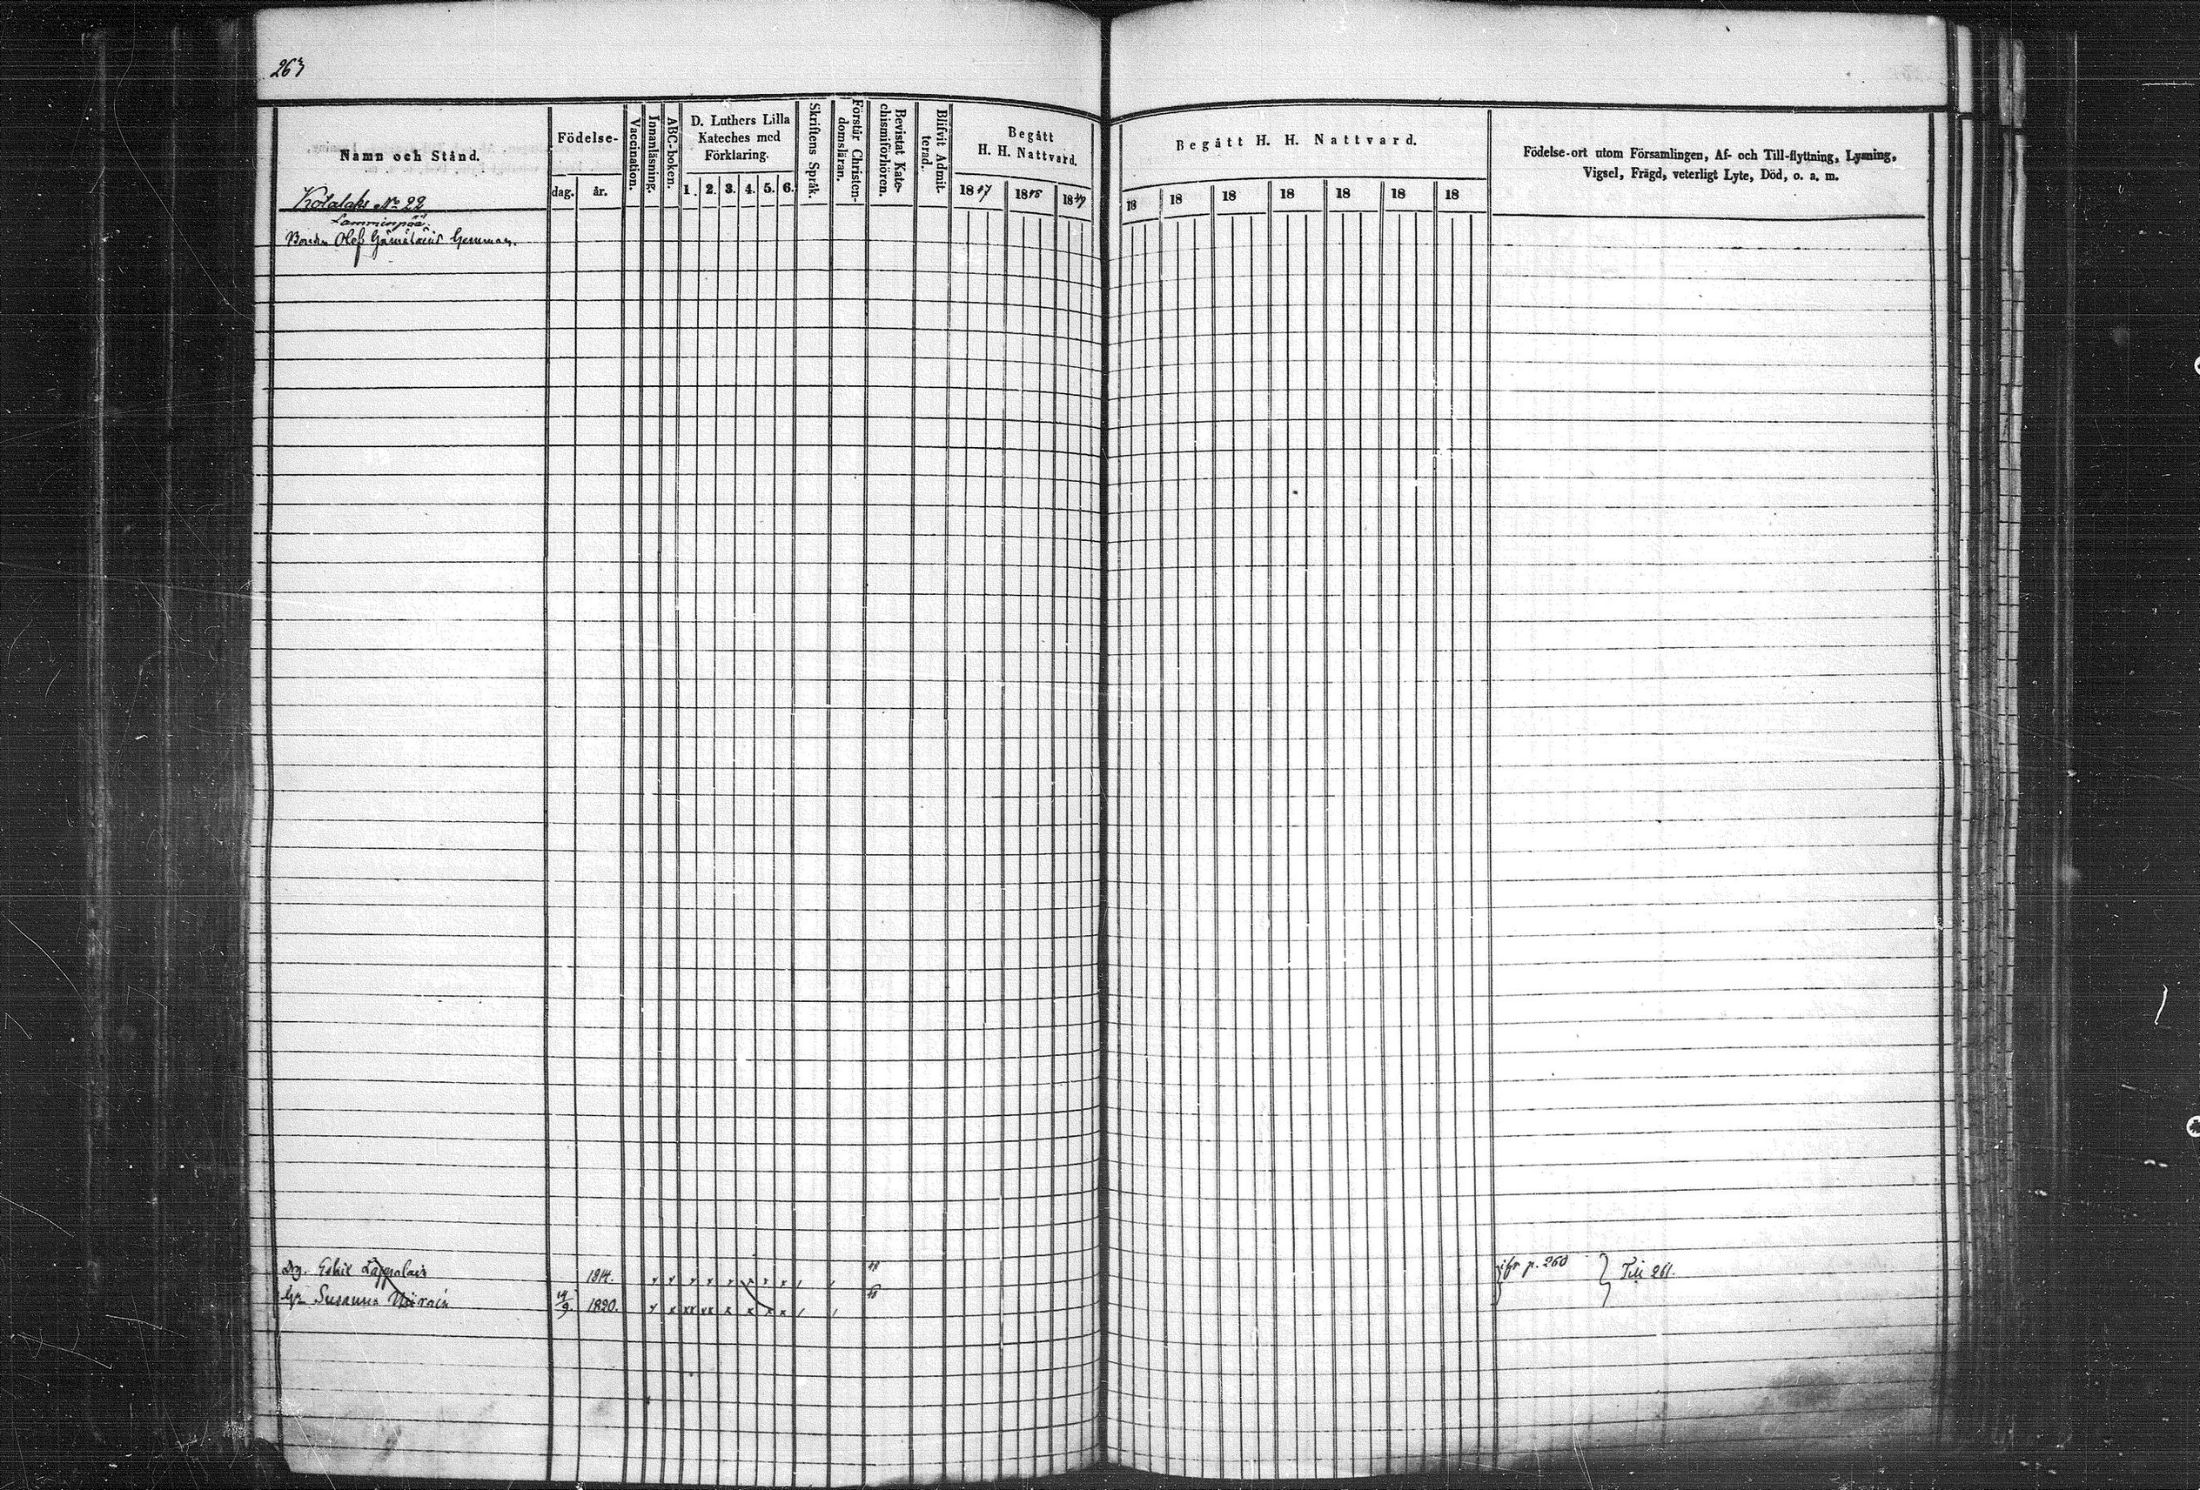 263
Namn och Stånd.
Födelse-
dag. år.
Vaccination.
Innanläsning.
ABC-boken.
D. Luthers Lilla
Kateches med
Förklaring.
1. 2. 3. 4. 5. 6.
Skriftens Språk.
Förstår Christen-
domsläran.
Bevistat Kate-
chismiförhören.
Blifvit Admit-
terad.
Begått
H. H. Nattvard.
1847 1848 1849
Begått H. H. Nattvard.
18 18 18 18 18 18 18
Födelse-ort utom Församlingen, Af- och Till-flyttning, Lysning,
Vigsel, Frägd, veterligt Lyte, Död, o. a. m.
No 22
Bonden Olof hemman.
Drg. Eskil 1814. 48 p. 260 Till 261.
Susanna 9 1820. 48